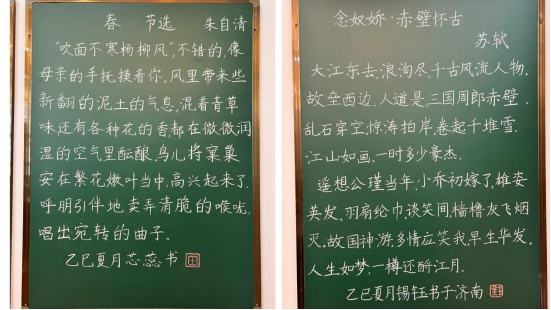 春 节选 朱自清
“吹面不寒杨柳风”,不错的,像
母亲的手抚摸着你,风里带来些
新翻的泥土的气息,混着青草
味还有各种花的香都在微微润
湿的空气里酝酿,鸟儿将窠巢
安在繁花嫩叶当中,高兴起来了
呼朋引伴地卖弄清脆的喉咙,
唱出宛转的曲子.
乙巳夏月芯蕊书
念奴娇·赤壁怀古
苏轼
大江东去,浪淘尽,千古风流人物.
故垒西边,人道是,三国周郎赤壁.
乱石穿空,惊涛拍岸,卷起千堆雪.
江山如画,一时多少豪杰.
遥想公瑾当年,小乔初嫁了,雄姿
英发,羽扇纶巾,谈笑间樯橹灰飞烟
灭,故国神游,多情应笑我,早生华发,
人生如梦,一樽还酹江月.
乙巳夏月锡钰书于济南